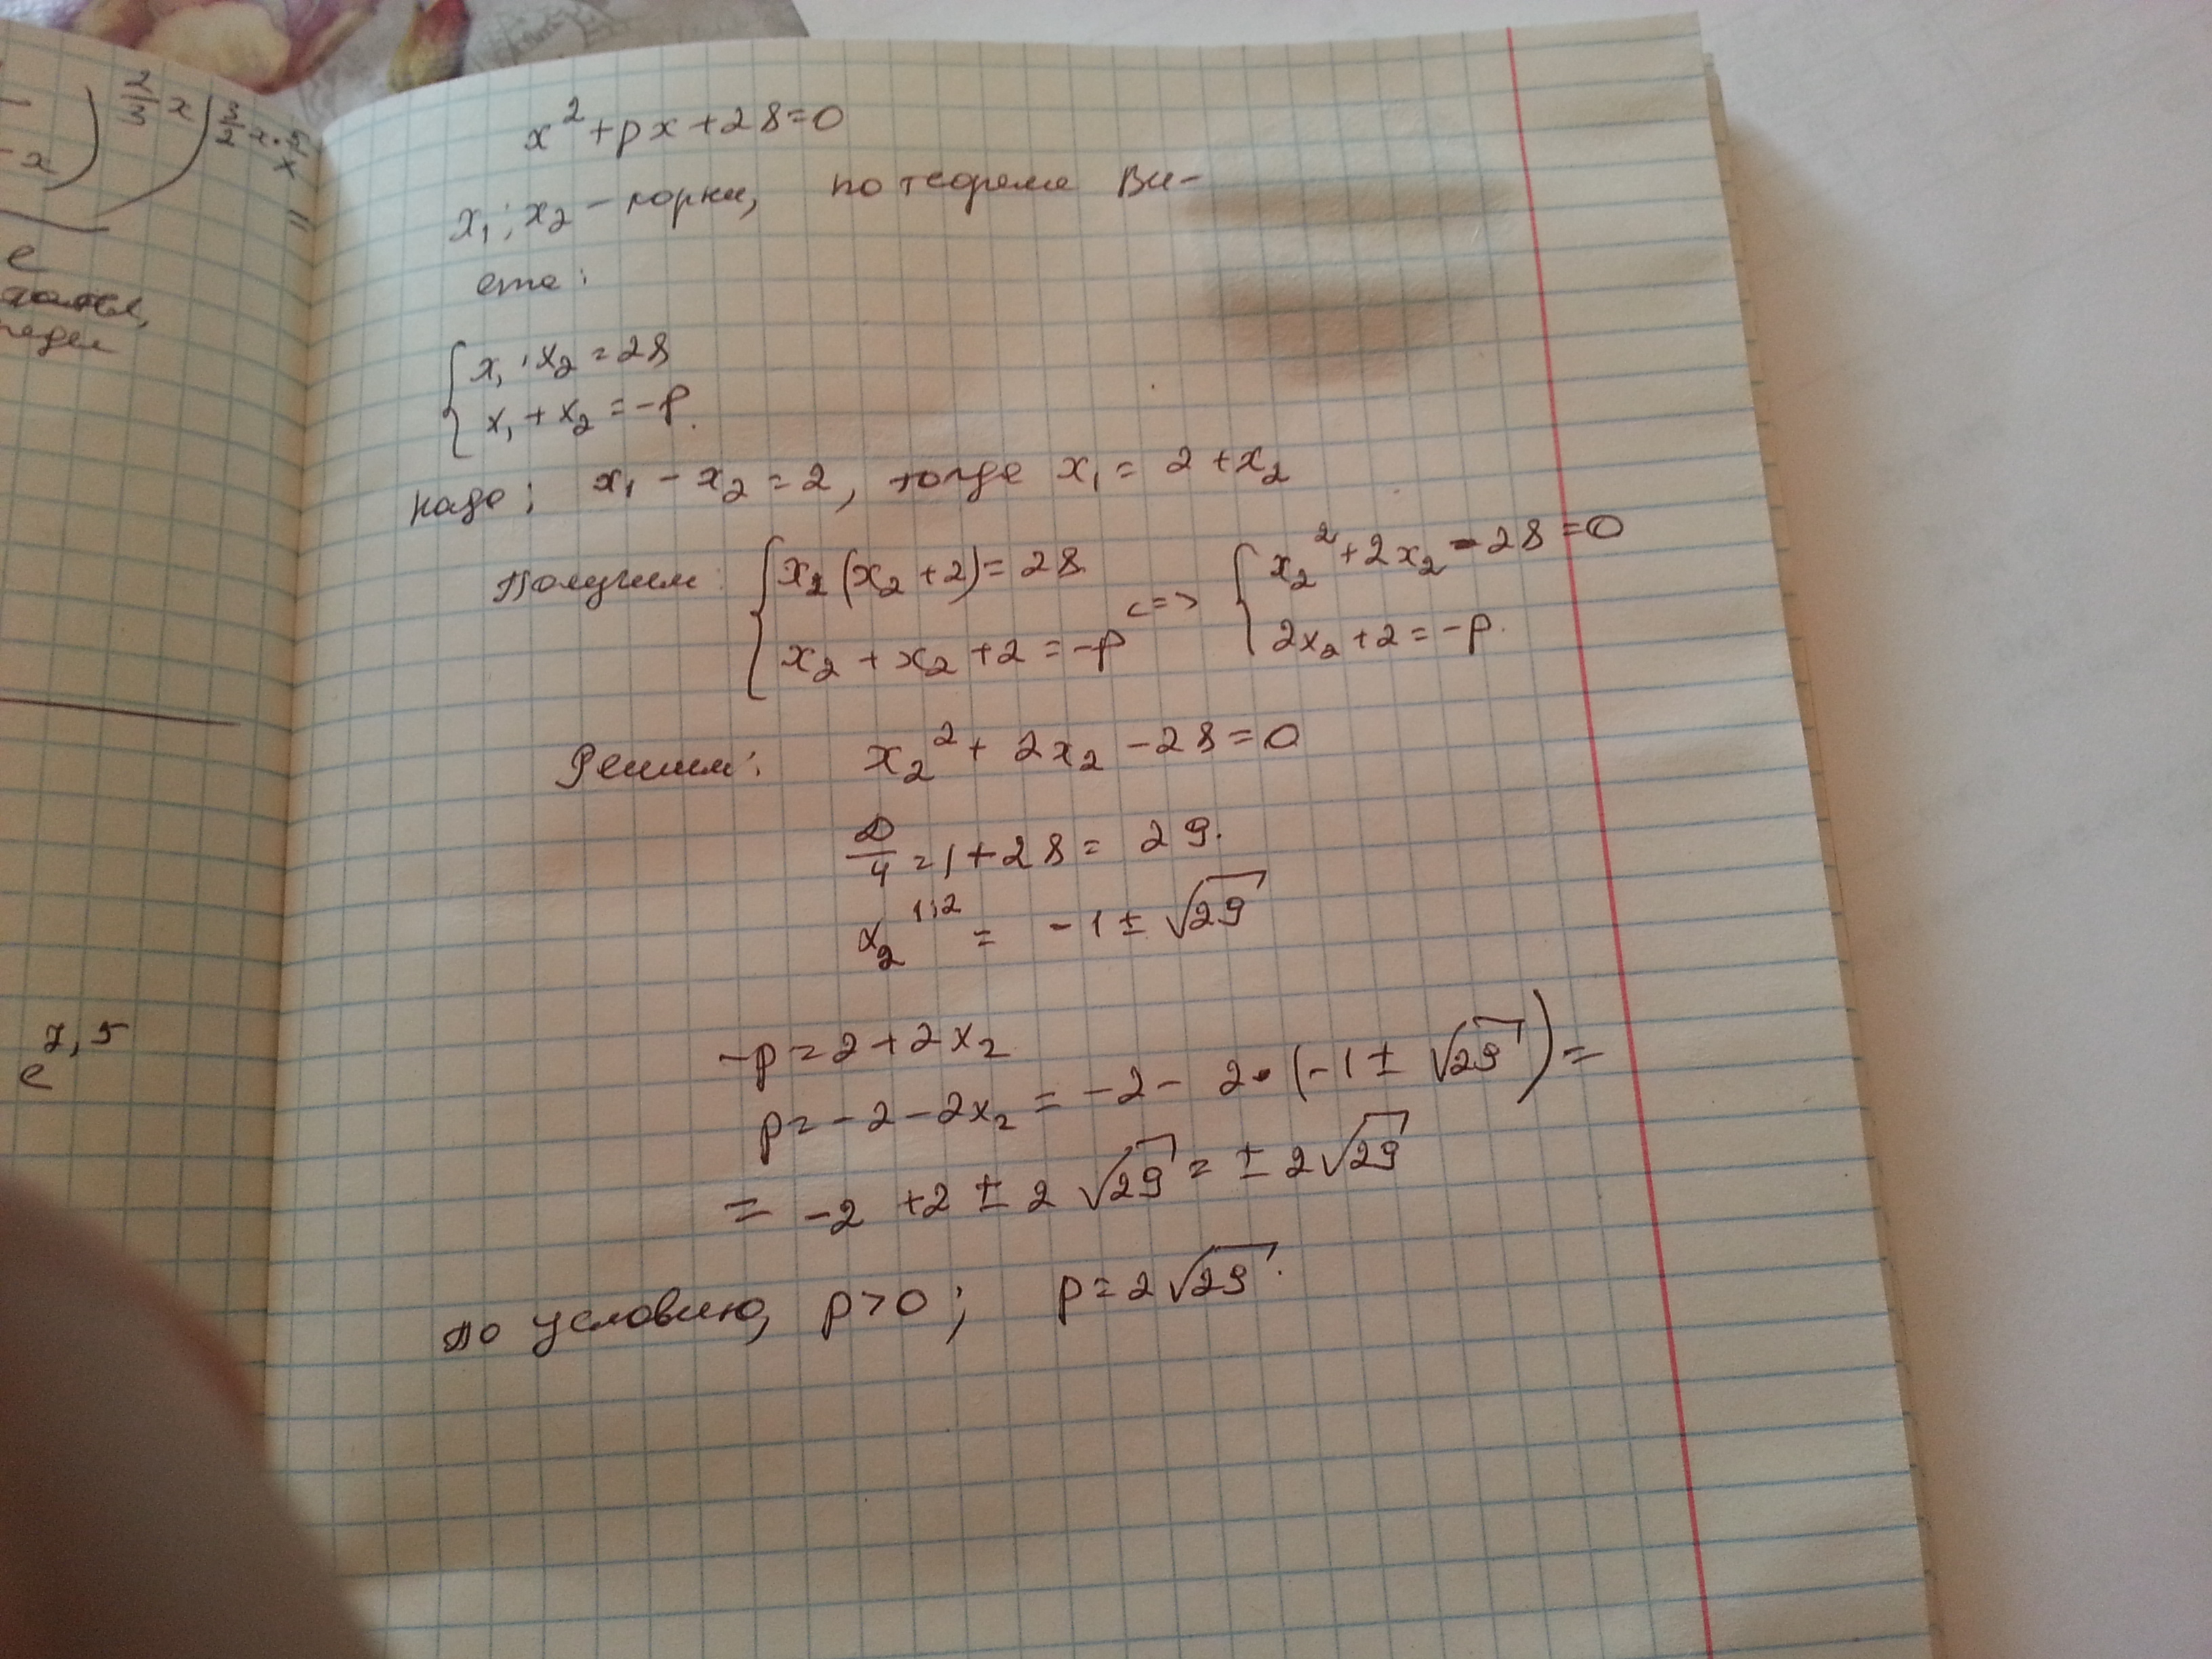 2/3 x
3/2 x · 5/x
- x
=
e
e^7,5
x² + px + 28 = 0
x₁; x₂ – корни, по теореме Ви-
ета:
{ x₁ · x₂ = 28
x₁ + x₂ = -p.
надо; x₁ - x₂ = 2, тогда x₁ = 2 + x₂
Получим: { x₂ (x₂ + 2) = 28 <=> { x₂² + 2x₂ - 28 = 0
x₂ + x₂ + 2 = -p 2x₂ + 2 = -p.
Решим: x₂² + 2x₂ - 28 = 0
D/4 = 1 + 28 = 29.
x₂^1;2 = -1 ± √29
-p = 2 + 2x₂
p = -2 - 2x₂ = -2 - 2·(-1 ± √29) =
= -2 + 2 ± 2√29 = ± 2√29
по условию, p > 0; p = 2√29.